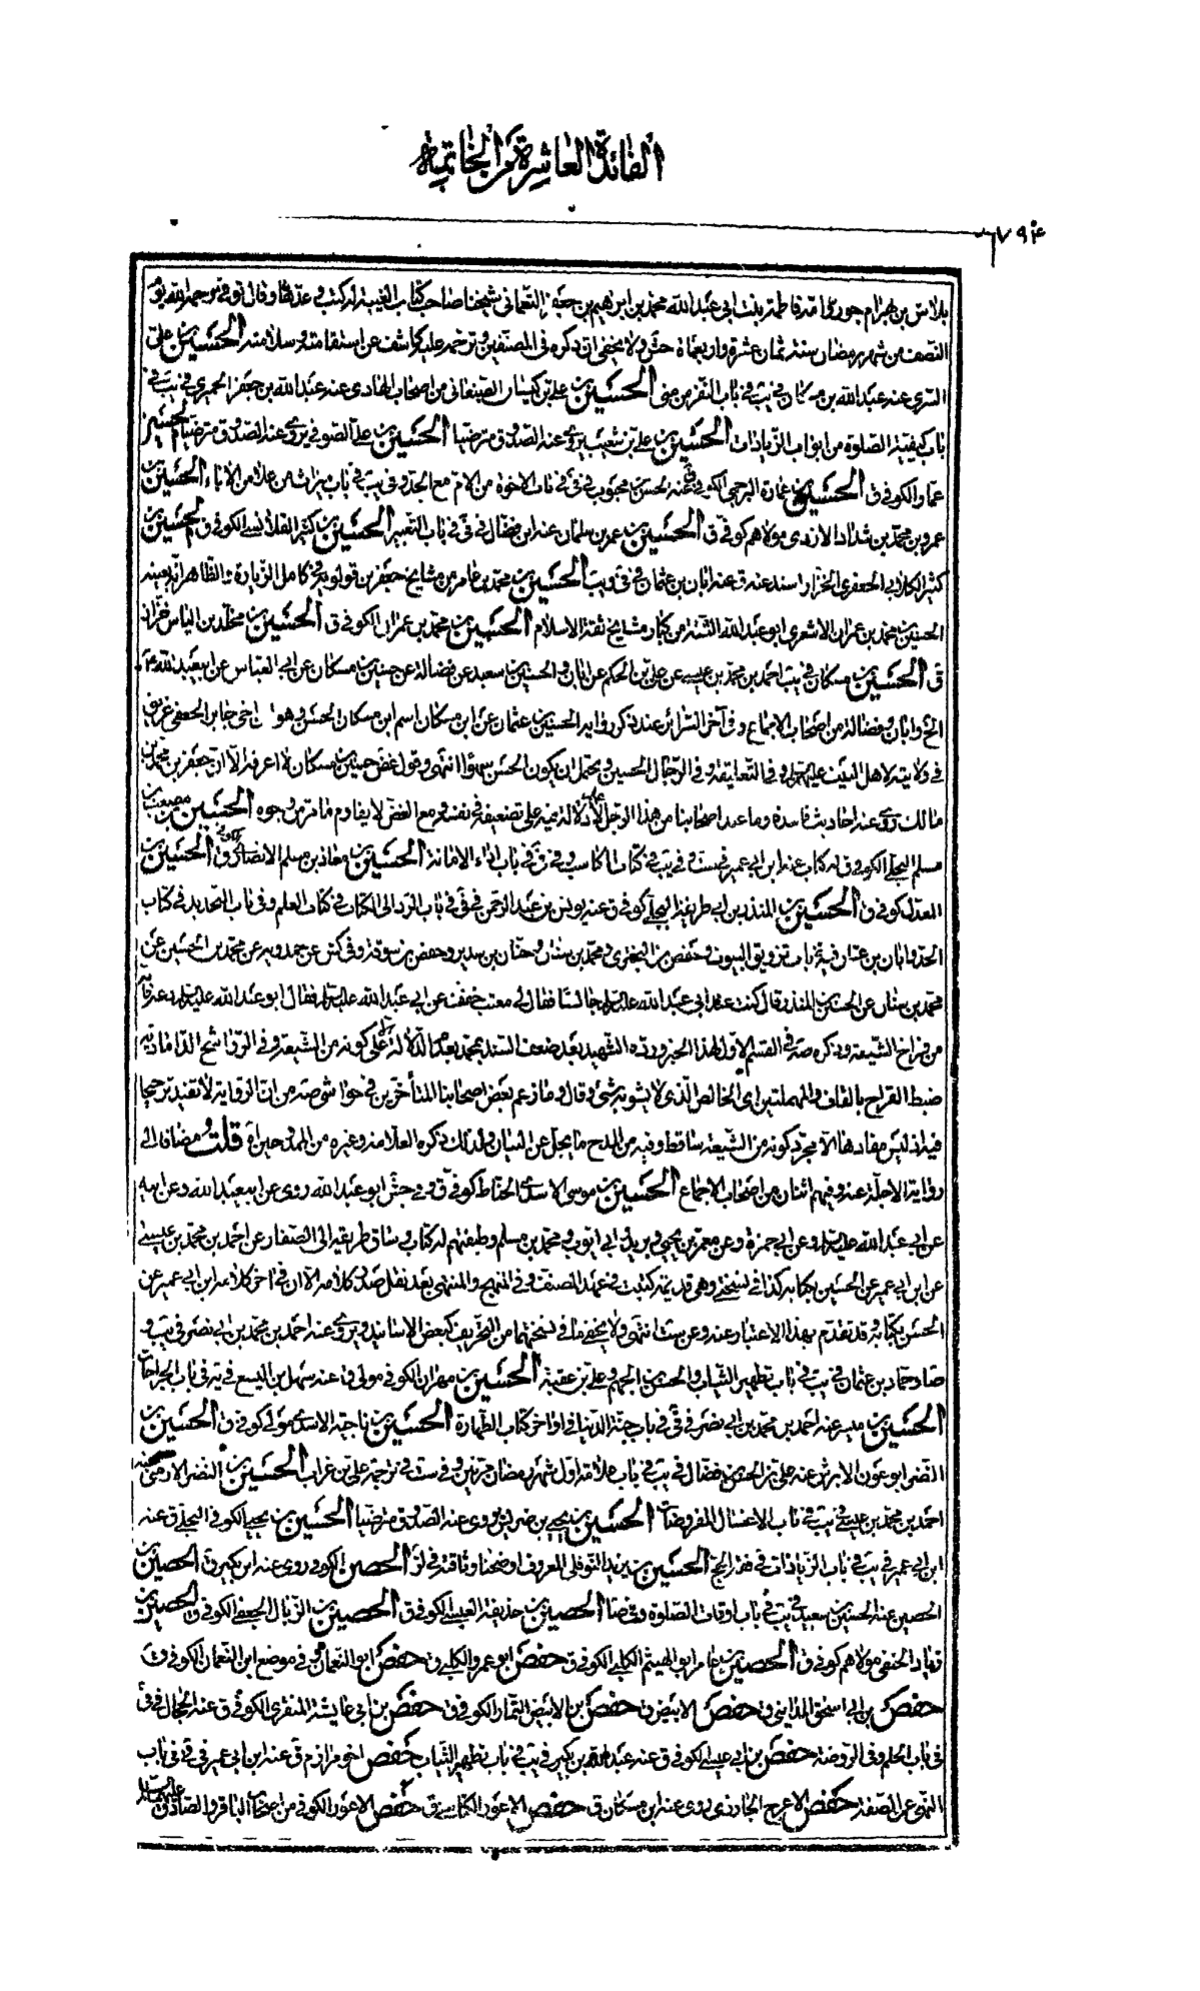 الفائدة العاشرة من الخاتمة
٧٩۴
بلاس بن بهرام جور وامه فاطمة بنت ابي عبد الله محمد بن ابراهيم بن جعفر النعماني شيخنا صاحب كتاب الغيبة له كتب وعدها وقال توفي رحمه الله يوم
النصف من شهر رمضان سنة ثمان عشرة واربعمائة جش ولا يخفى ان ذكره في المصنفين وترحمه عليه كاشف عن استقامته وسلامته الحسين بن علي
السري عنه عبد الله بن مسكان في يب في باب النفر من منى الحسين بن علي بن كيسان الصنعاني من اصحاب الهادي عنه عبد الله بن جعفر الحميري في يب في
باب كيفية الصلوة من ابواب الزيادات الحسين بن علي بن شعيب يروى عنه الصدوق مترضيا الحسين بن علي الصوفي يروى عنه الصدوق مترضيا الحسين
عمارا الكوفي ق الحسين بن عمارة البرجمي الكوفي ق عنه الحسن بن محبوب في في في باب الاخوة من الام مع الجد وفي يب في باب ميراث من علا من الاباء الحسين بن
عمرو بن محمد بن شداد الازدي مولاهم كوفي ق الحسين بن عمر بن سلمان عنه ابن فضال في في في باب التعبير الحسين بن كثير القلانسي الكوفي ق الحسين بن
كثير الكلابي الجعفري الخزاز اسند عنه ق عنه ابان بن عثمان في في ويب الحسين بن محمد بن عامر من مشايخ جعفر بن قولويه في كامل الزيارة والظاهر انه بعينه
الحسين بن محمد بن عمران الاشعري ابو عبد الله الثقة من كبار مشايخ ثقة الاسلام الحسين بن محمد بن عمران الكوفي ق الحسين بن مخلد بن الياس خزاز
ق الحسين بن مسكان في يب احمد بن محمد بن عيسى عن علي بن الحكم عن ابان والحسين بن سعيد عن فضالة عن حسين بن مسكان عن ابي العباس عن ابي عبد الله
الخ وابان وفضالة من اصحاب الاجماع وفي آخر السرائر عند ذكر رواية الحسين بن عثمان عن ابن مسكان اسم ابن مسكان الحسن وهو ابن اخي جابر الجعفي غريق
في ولايته لاهل البيت عليهم السلام وفي التعليقة وفي الرجال الحسين ويحتمل ان يكون الحسن سهوا انتهى وقول غض حسين بن مسكان لا اعرفه الا ان جعفر بن محمد بن
مالك روى عنه احاديث فاسدة وما عند اصحابنا من هذا الرجل الا علم لا دلالة فيه على تضعيفه في نفسه ومع الغض لا يقاوم ما مر من وجوه الحسين بن مصعب بن
مسلم البجلي الكوفي ق له كتاب عنه ابن ابي عمير في ست وفي يب في كتاب المكاسب وفي في في باب اداء الامانة الحسين بن معاذ بن مسلم الانصاري الكوفي ق الحسين بن
المعدل كوفي ق الحسين بن المنذر بن ابي طريفة البجلي كوفي ق عنه يونس بن عبد الرحمن في في في باب الرد الى الكتاب في كتاب العلم وفي باب التحديد في كتاب
الحدود وابان بن عثمان فيه في باب تزويق البيوت وحفص بن البختري ومحمد بن سنان وحنان بن سدير وحفص بن سوقة وفي كش عن حمدويه عن محمد بن الحسين عن
محمد بن سنان عن الحسين بن المنذر قال كنت عند ابي عبد الله عليه السلام جالسا فقال لي معتب خفف عن ابي عبد الله عليه السلام فقال ابو عبد الله عليه السلام دعه فانه
من فراخ الشيعة وذكره صه في القسم الاول لهذا الخبر ورده الشهيد بعد ضعف السند بمحمد بعدم الدلالة الا على كونه من الشيعة وفي الرواشح الداماد
ضبط القراح بالقاف والمهملتين اي الخالص الذي لا يشوبه شئ وقال وما زعم بعض اصحابنا المتأخرين في حواشي صه من ان الرواية لا تفيد ترجيحا
فيه اذ ليس مفادها الا مجرد كونه من الشيعة ساقط وفيه من المدح ما يجل عن البيان ولذلك ذكره العلامة وغيره من الممدوحين اه قلت مضافا الى
رواية الاجلة عنه وفيهم اثنان من اصحاب الاجماع الحسين بن موسى الاسدي الحناط كوفي ق وفي جش ابو عبد الله روى عن ابي عبد الله وعن ابيه
عن ابي عبد الله عليه السلام وعن ابي حمزة وعن معمر بن يحيى وبريد وابي ايوب ومحمد بن مسلم وطبقتهم له كتاب وساق طريقه الى الصفار عن احمد بن محمد بن عيسى
عن ابن ابي عمير عن الحسين بكتابه كذا في نسختي وهي قديمة كتبت في عهد المصنف وفي المنهج والمنتهى بعد نقل صدر كلامه الا ان في اخر كلامه ابن ابي عمير عن
الحسن بكتابه وقد تقدم بهذا الاعتبار عنه وعن ست انتهى ولا يخفى ما في نسختهما من التحريف كبعض الاسانيد ويروى عنه احمد بن محمد بن ابي نصر في يب و
صا وحماد بن عثمان في يب في باب تطهير الثياب والحسن بن الجهم وعلي بن عقبة الحسين بن مهران الكوفي مولى ق عنه سهل بن اليسع في يه في باب الجراحات
الحسين بن ميسر عنه احمد بن محمد بن ابي نصر في في في باب جنة الدنيا وفي اواخر كتاب الطهارة الحسين بن ناجية الاسدي مولى كوفي ق الحسين بن
النضر ابو عون الابرش عنه علي بن الحسن بن فضال في يب في باب علامة اول شهر رمضان مرتين وفي ست في ترجمة علي بن غراب الحسين بن النضر الارمني عنه
احمد بن محمد بن عيسى في يب في باب الاغسال المفروضات الحسين بن يحيى بن ضريس يروى عنه الصدوق مترضيا الحسين بن يحيى الكوفي البجلي ق عنه
ابن ابي عمير في يب في باب الزيادات في فقه الحج الحسين بن يزيد النوفلي المعروف اوضحنا وثاقته في لز الحصين الكوفي روى عنه ابن بكير ق الحصين بن
الحصين عنه الحسين بن سعيد في يب في باب اوقات الصلوة وفي صا الحصين بن حذيفة العبسي الكوفي ق الحصين بن الزبال الجعفي الكوفي ق الحصين بن
زياد الحنفي مولاهم كوفي ق الحصين بن عامر ابو الهيثم الكلبي الكوفي ق حفص ابو عمرو الكلبي ق حفص ابو النعمان وفي موضع ابن النعمان الكوفي ق
حفص بن ابي اسحق المدايني ق حفص الابيض ق حفص بن الابيض التمار الكوفي ق حفص بن ابي عايشة المنقري الكوفي ق عنه الحجال في في
في باب الحلم وفي الروضة حفص بن ابي عيسى الكوفي ق عنه عبد الله بن بكير في يب في باب تطهير الثياب حفص اخو مرازم ق عنه ابن ابي عمير في في في باب
النهي عن الصفة حفص الاعرج الجازري روى عنه ابن مسكان ق حفص الاعور الكناسي ق حفص الاعور الكوفي من اصحاب الباقر والصادق عليهما السلام